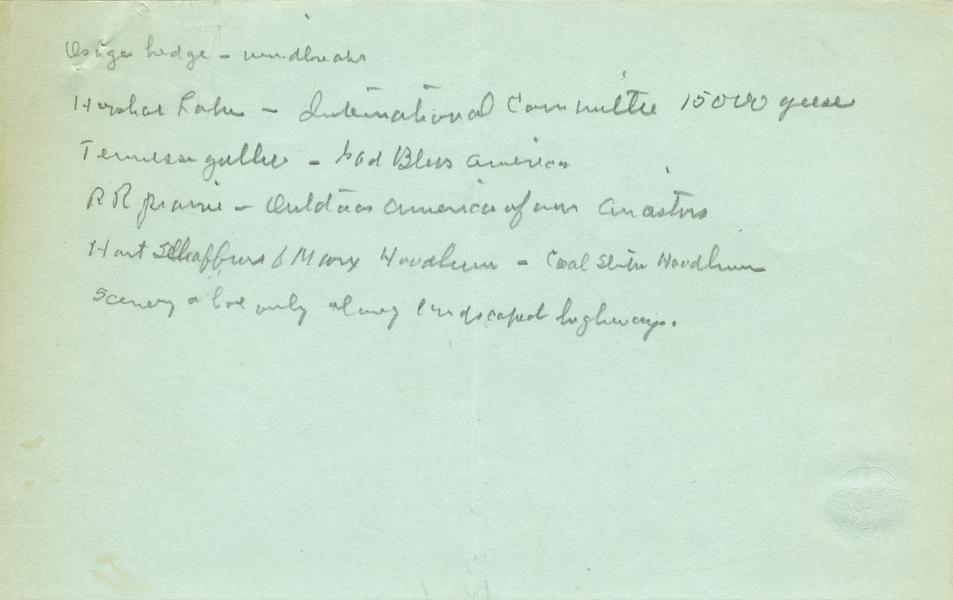 Osage hedge – windbreaks
Horshoe Lake – International Committee 15000 geese
Tennessee gullies – God Bless America
RR prairie – Outdoor America of our ancestors
Hart Schaffner & Marx Woodburn – Coal strip Woodburn
Scenery along landscaped highways.